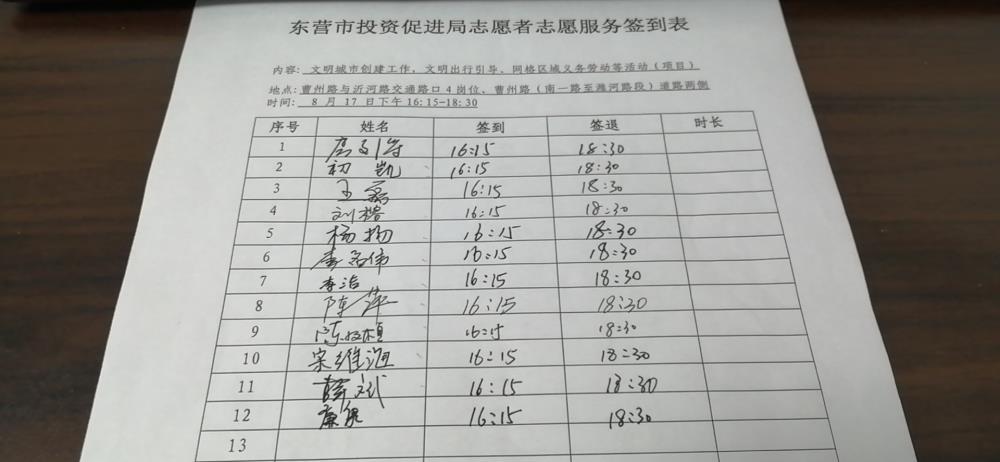 东营市投资促进局志愿者志愿服务签到表
内容: 文明城市创建工作, 文明出行引导、网格区域义务劳动等活动(项目)
地点: 曹州路与沂河路交通路口4岗位、曹州路(南一路至潍河路段)道路两侧
时间: 8月17日下午16:15-18:30
序号 姓名 签到 签退 时长
1 16:15 18:30
2 初凯 16:15 18:30
3 王磊 16:15 18:30
4 刘榕 16:15 18:30
5 杨扬 16:15 18:30
6 李 伟 16:15 18:30
7 李洁 16:15 18:30
8 陈萍 16:15 18:30
9 陈 16:15 18:30
10 宋维海 16:15 18:30
11 薛斌 16:15 18:30
12 康 16:15 18:30
13